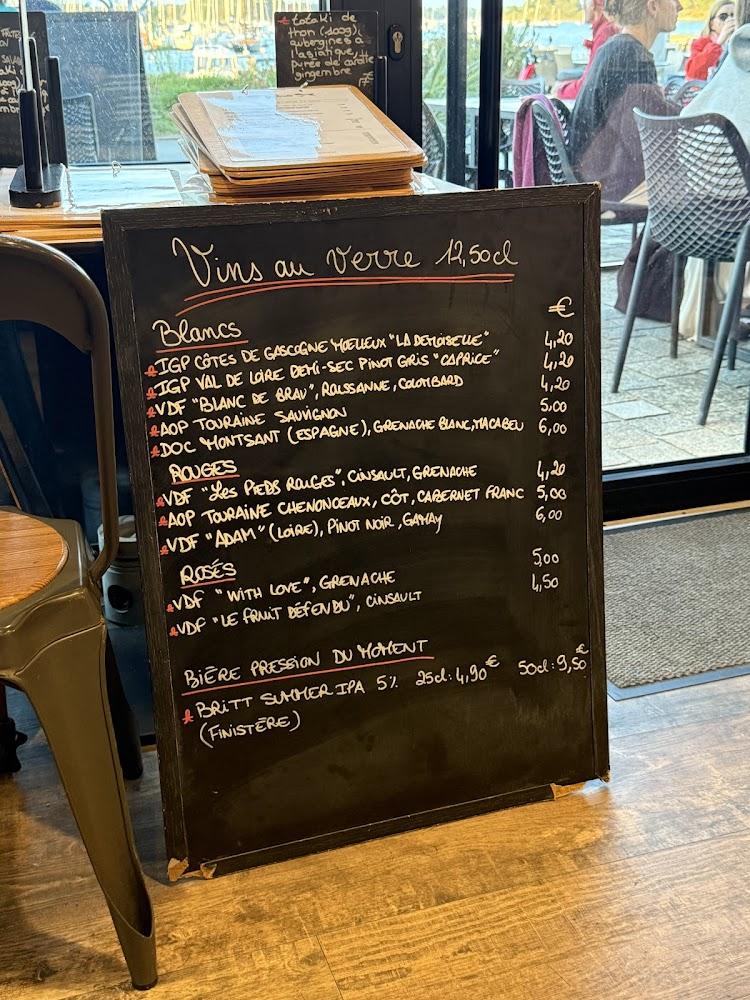 tataki de
thon (200g),
aubergines à
l'asiatique,
purée de carotte
gingembre
Vins au verre 12,50cl
€
Blancs
IGP CÔTES DE GASCOGNE MOELLEUX "LA DEMOISELLE" 4,20
IGP VAL DE LOIRE DEMI-SEC PINOT GRIS "CAPRICE" 4,20
VDF "BLANC DE BRAU", ROUSSANNE, COLOMBARD 4,20
AOP TOURAINE SAUVIGNON 5,00
DOC MONTSANT (ESPAGNE), GRENACHE BLANC, MACABEU 6,00
ROUGES
VDF "LES PIEDS ROUGES", CINSAULT, GRENACHE 4,20
AOP TOURAINE CHENONCEAUX, CÔT, CABERNET FRANC 5,00
VDF "ADAM" (LOIRE), PINOT NOIR, GAMAY 6,00
ROSÉS
VDF "WITH LOVE", GRENACHE 5,00
VDF "LE FRUIT DÉFENDU", CINSAULT 4,50
BIÈRE PRESSION DU MOMENT
BRITT SUMMER IPA 5% 25cl: 4,90€ 50cl: 9,50€
(FINISTÈRE)